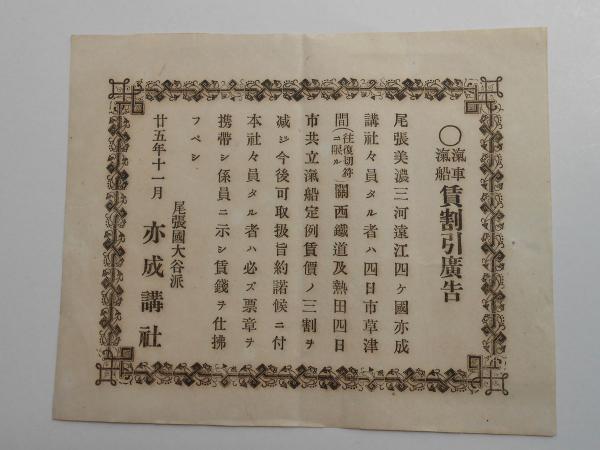 ○滊車滊船賃割引廣告
尾張美濃三河遠江四ケ國亦成
講社々員タル者ハ四日市草津
間(往復切符ニ限ル)關西鐵道及熱田四日
市共立滊船定例賃價ノ三割ヲ
減ジ今後可取扱旨約諾候ニ付
本社々員タル者ハ必ズ票章ヲ
携帶シ係員ニ示シ賃錢ヲ仕拂
フベシ
尾張國大谷派
廿五年十一月 亦成講社